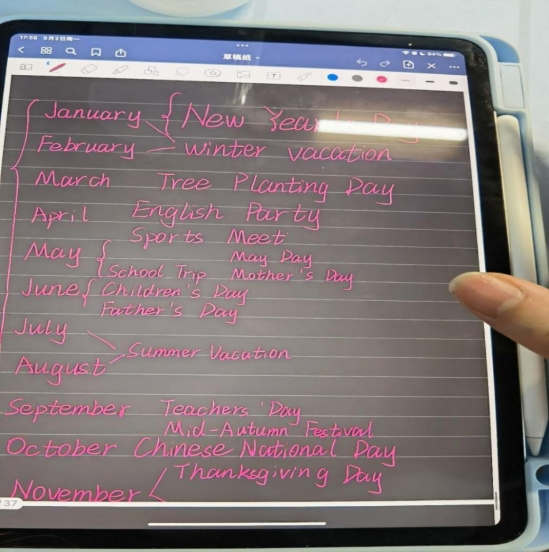 17:56 6月2日周一
94%
草稿纸
January { New Year's Day
February winter vacation
March Tree Planting Day
April English Party
Sports Meet
May { May Day
School Trip Mother's Day
June { Children's Day
Father's Day
July
Summer Vacation
August
September Teachers' Day
Mid-Autumn Festival
October Chinese National Day
Thanksgiving Day
November
37